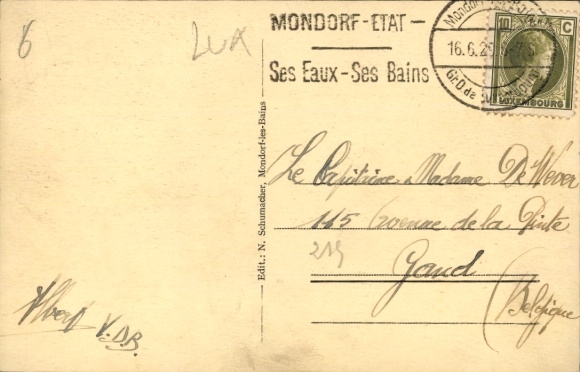 6
LUX
MONDORF-ETAT-
Ses Eaux-Ses Bains
Mondorf
16.6.29
Gr.D de
10 C
LUXEMBOURG
Edit.: N. Schumacher, Mondorf-les-Bains
Le Capitaine & Madame De Wever
115 Avenue de la Pinte
219
Gand
(Belgique
Albert V.D.B.